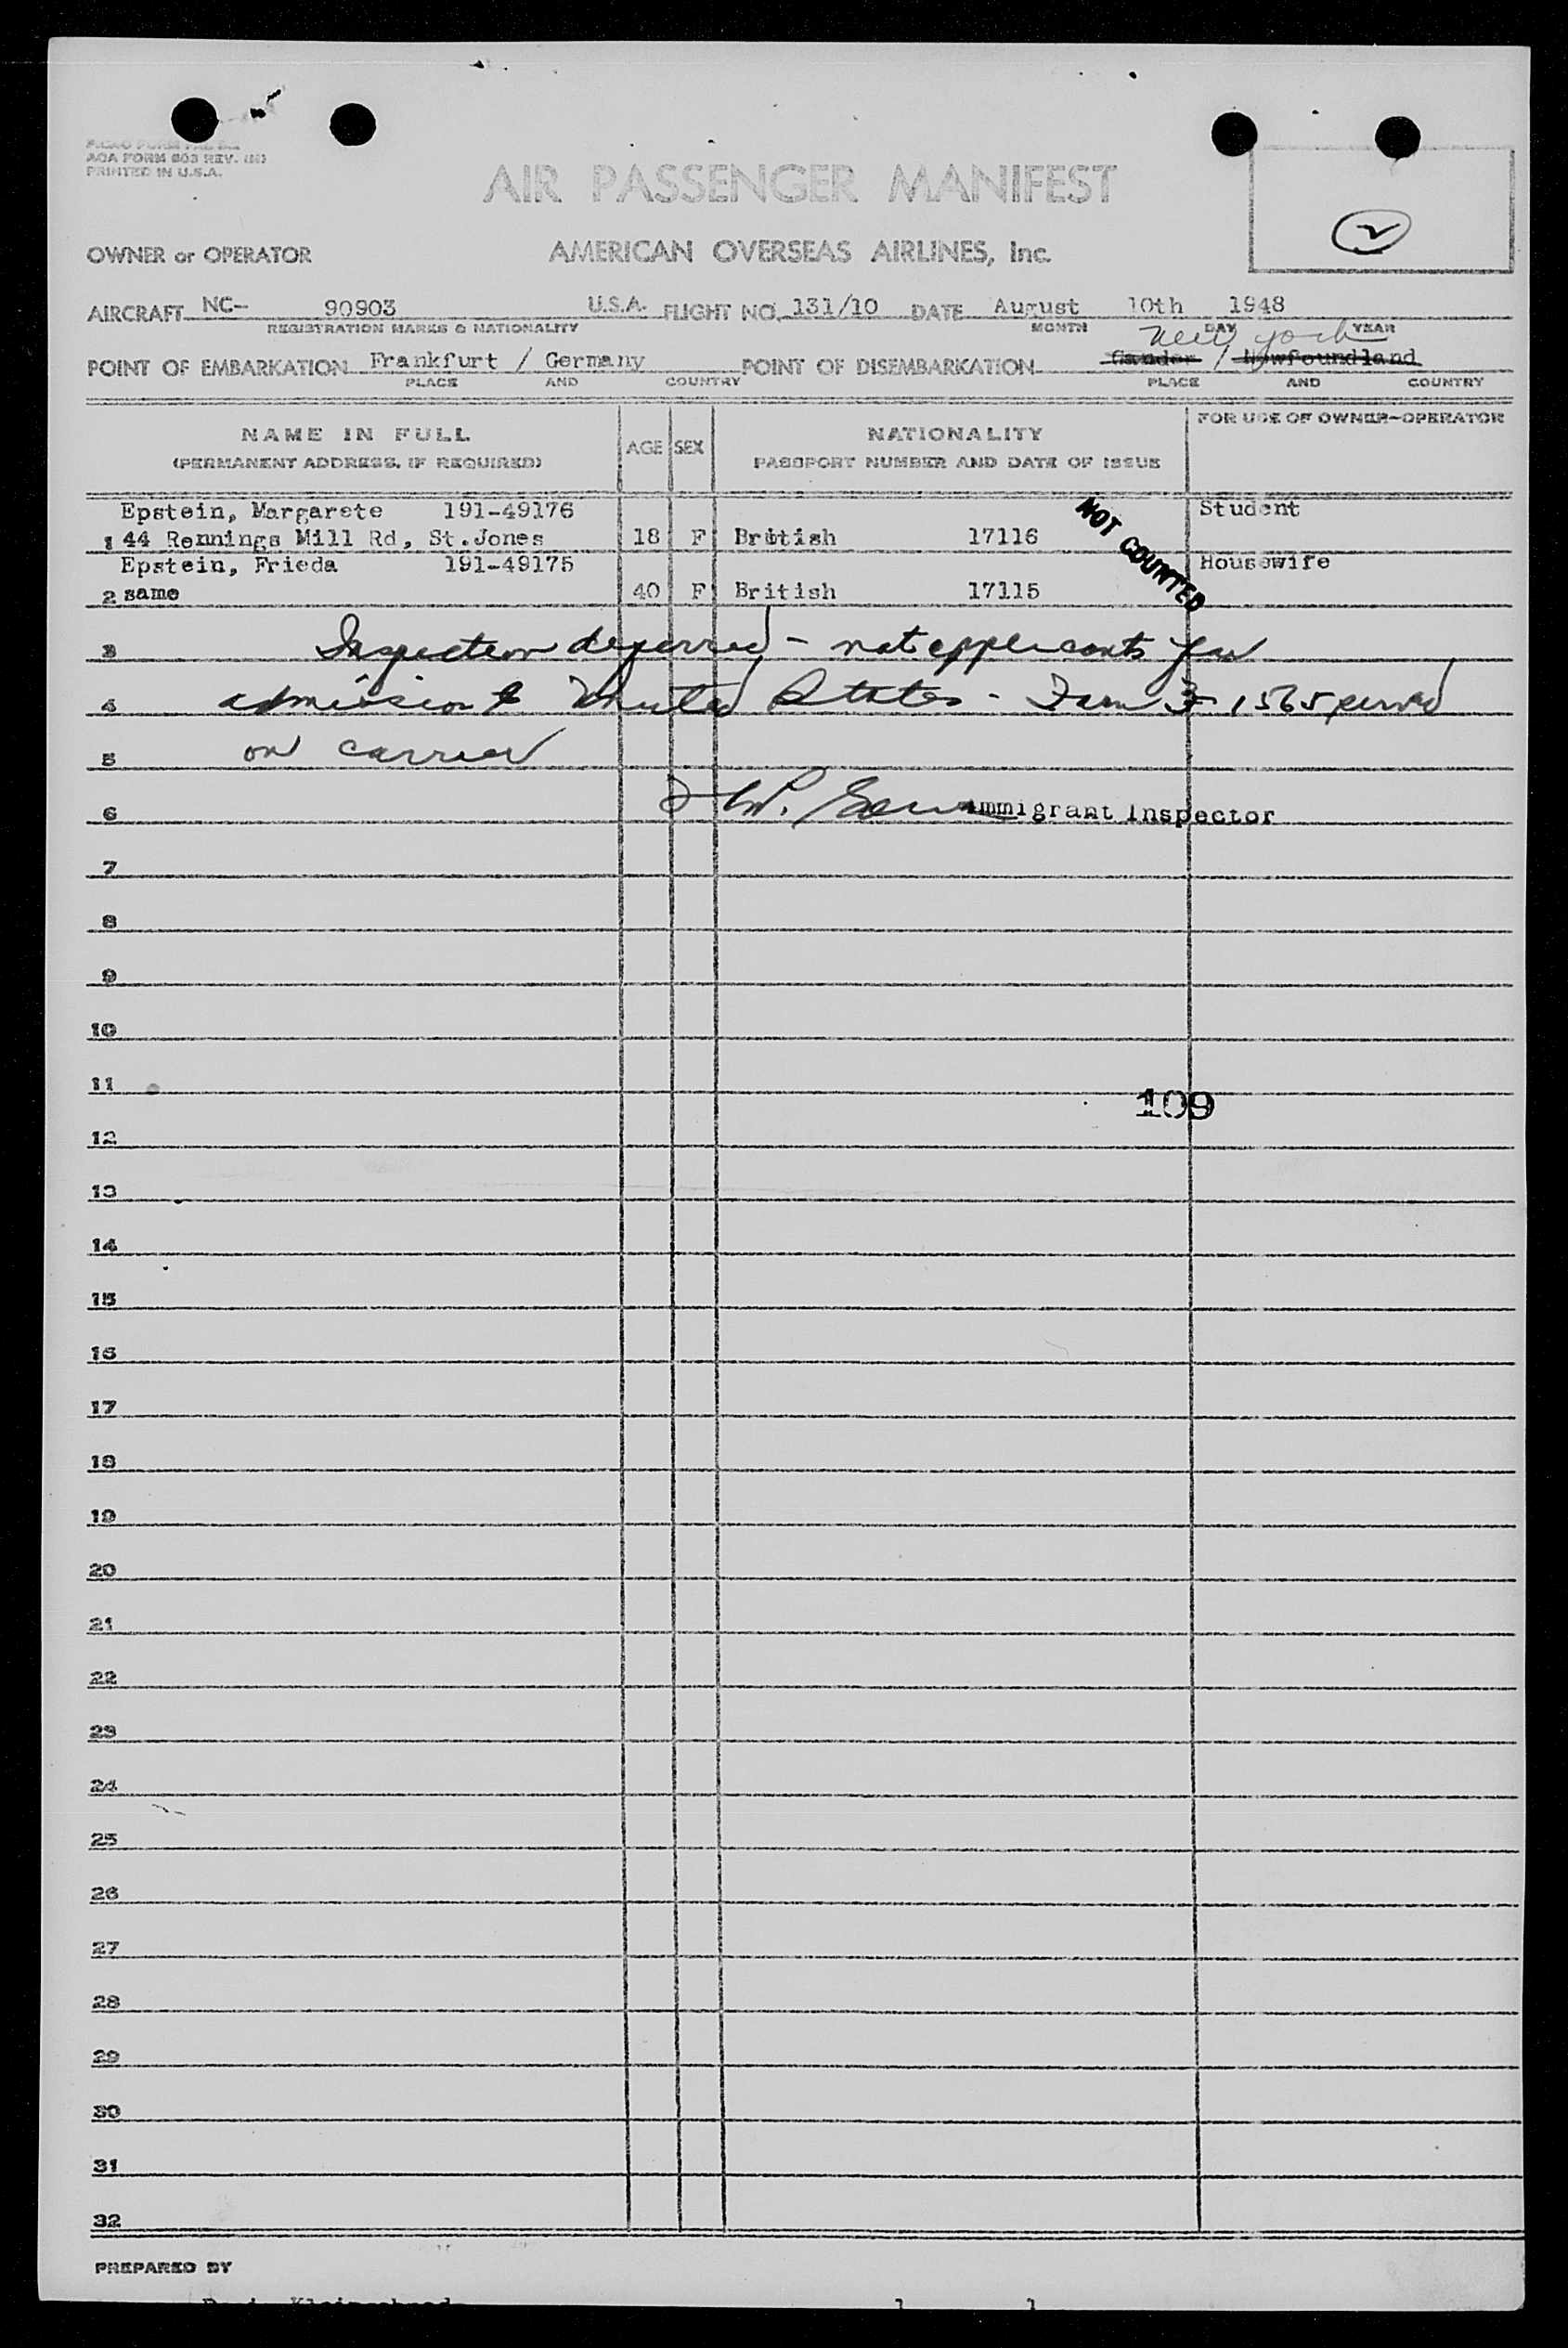 AOA FORM 803 REV.
PRINTED IN U.S.A.
AIR PASSENGER MANIFEST
2
OWNER or OPERATOR AMERICAN OVERSEAS AIRLINES, Inc.
AIRCRAFT NC- 90903 U.S.A. FLIGHT NO. 131/10 DATE August 10th 1948
REGISTRATION MARKS & NATIONALITY MONTH DAY YEAR
New York
POINT OF EMBARKATION Frankfurt / Germany POINT OF DISEMBARKATION Gander / Newfoundland
PLACE AND COUNTRY PLACE AND COUNTRY
NAME IN FULL AGE SEX NATIONALITY FOR USE OF OWNER-OPERATOR
(PERMANENT ADDRESS, IF REQUIRED) PASSPORT NUMBER AND DATE OF ISSUE
Epstein, Margarete 191-49176 Student
1 44 Rennings Mill Rd, St.Jones 18 F British 17116
NOT COUNTED
Epstein, Frieda 191-49175 Housewife
2 same 40 F British 17115
3 Inspection deferred - not applicants for
4 admission to United States - Form I 1565 served
5 on carrier
6 Immigrant Inspector
7
8
9
10
11
109
12
13
14
15
16
17
18
19
20
21
22
23
24
25
26
27
28
29
30
31
32
PREPARED BY